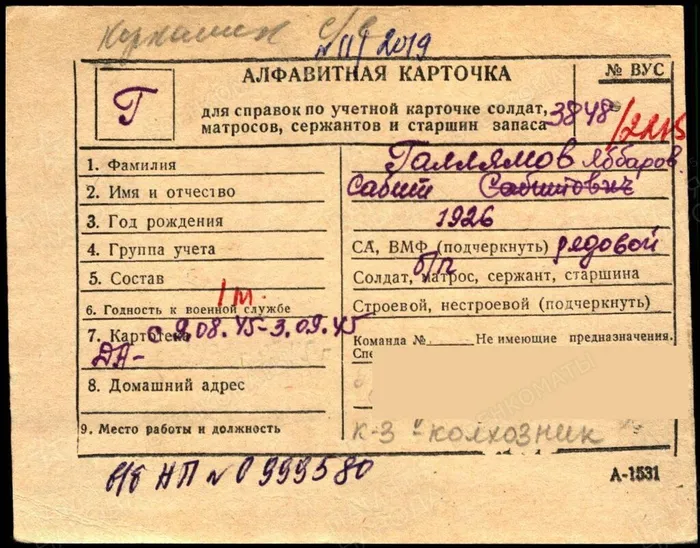 № 11/2019
АЛФАВИТНАЯ КАРТОЧКА
№ ВУС
Г
для справок по учетной карточке солдат,
матросов, сержантов и старшин запаса
3848
1. Фамилия
Галлямов
2. Имя и отчество
Сабит Сабитович
3. Год рождения
1926
4. Группа учета
СА, ВМФ (подчеркнуть) рядовой
5. Состав
б/п
Солдат, матрос, сержант, старшина
1 м.
6. Годность к военной службе
Строевой, нестроевой (подчеркнуть)
7. Картотека
08.45-3.09.45
ДА-
Команда № Не имеющие предназначения.
8. Домашний адрес
9. Место работы и должность
к-з "-колхозник
НП № 0999580
А-1531